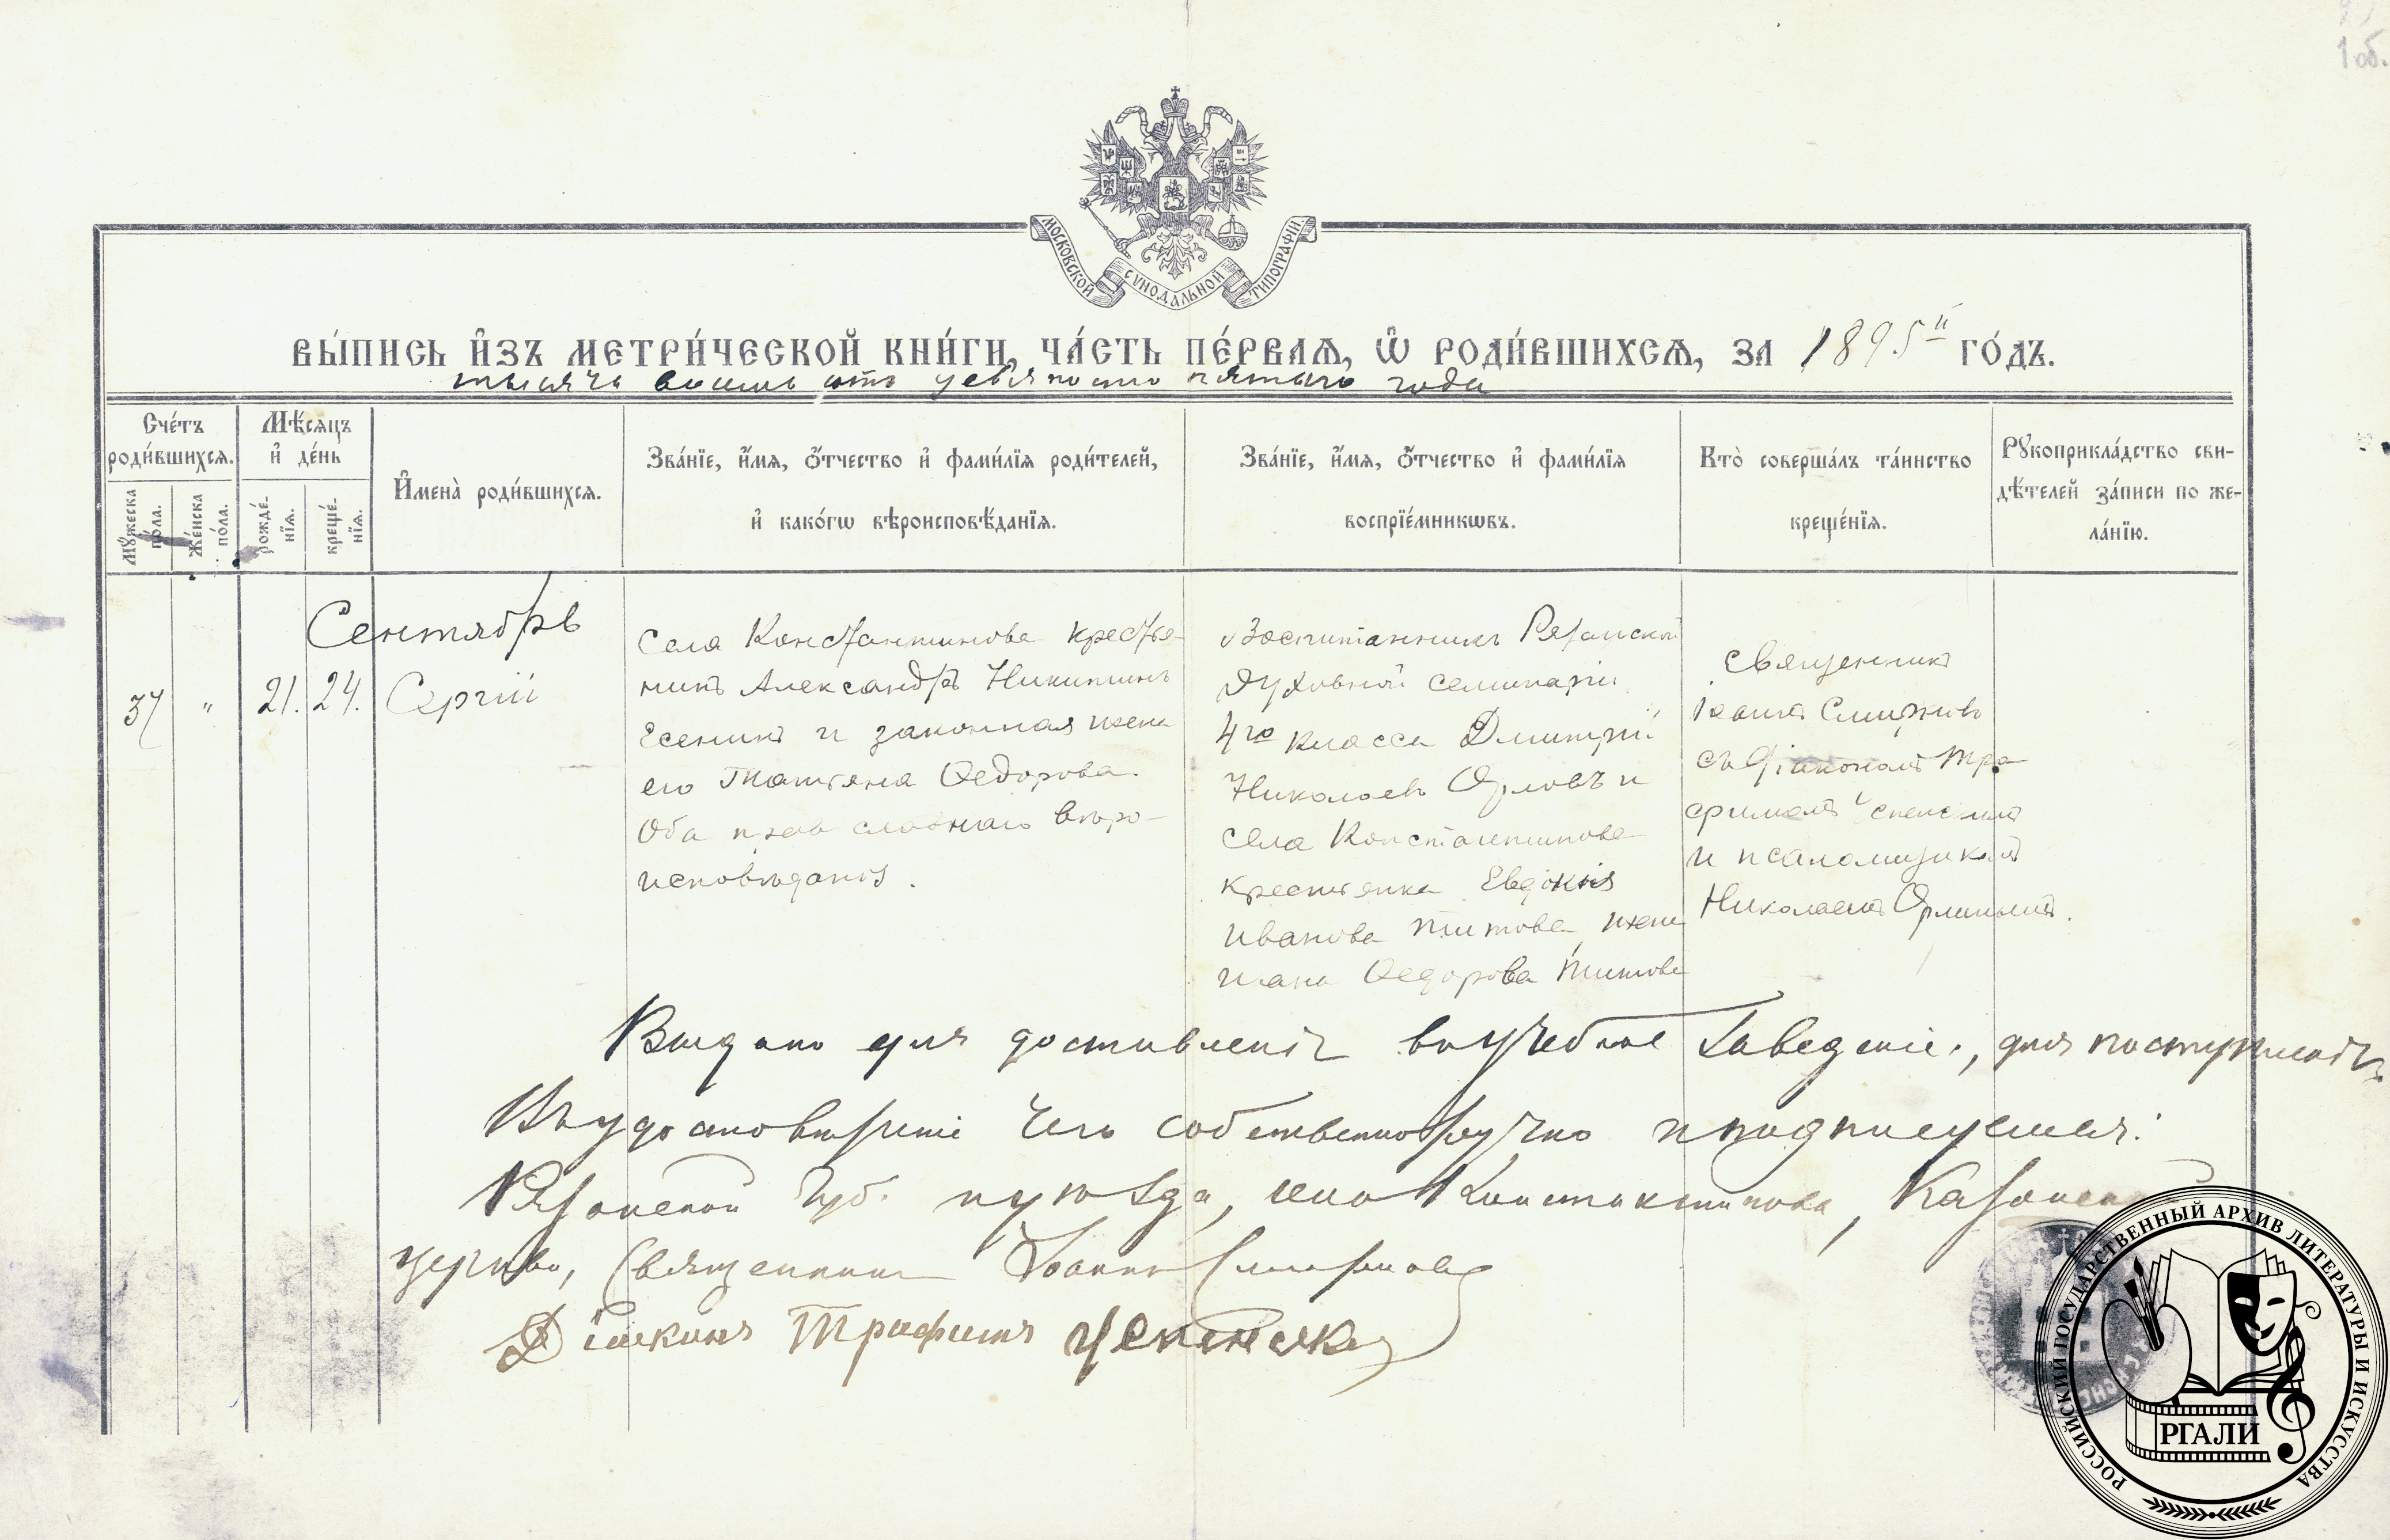 1 об.
МОСКОВСКОЙ СѴНОДАЛЬНОЙ ТИПОГРАФІИ.
ВЫ́ПИСЬ И҆ЗЪ МЕТРИ́ЧЕСКОЙ КНИ́ГИ, ЧА́СТЬ ПЕ́РВАѦ, Ѡ҆ РОДИ́ВШИХСѦ, ЗА 1895й ГО́ДЪ.
тысяча восемь сотъ девяносто пятаго года
Сче́тъ роди́вшихсѧ.
Мꙋ́жеска по́ла.
Же́нска по́ла.
Мѣ́сѧцъ и҆ де́нь
рожде́нїѧ.
креще́нїѧ.
И҆мена̀ роди́вшихсѧ.
Зва́нїе, и҆́мѧ, ѻ҆́тчество и҆ фами́лїѧ роди́телей,
и҆ како́гѡ вѣроисповѣ́данїѧ.
Зва́нїе, и҆́мѧ, ѻ҆́тчество и҆ фами́лїѧ
воспрїе́мникѡвъ.
Кто̀ соверша́лъ та́инство
креще́нїѧ.
Рꙋкоприкла́дство сви-
дѣ́телей за́писи по же-
ла́нїю.
Сентябрь
37 " 21. 24. Сергій
Села Константинова крестья-
нинъ Александръ Никитинъ
Есенинъ и законная жена
его Татьяна Ѳедорова.
Оба православнаго вѣро-
исповѣданія.
Воспитанникъ Рязанской
духовной семинаріи
4го класса Димитрій
Николаевъ Орловъ и
села Константинова
крестьянка Евдокія
Иванова Титова, жена
Ѳедорова Титова
Священникъ
Іоаннъ Смирновъ
съ діакономъ Тро
фимомъ Успенскимъ
и псаломщикомъ
Николаемъ Орлинымъ.
Выдано для доставленія въ учебное заведеніе, для поступленія
Въ удостовѣреніе чего собственноручно и подписуемся:
Рязанской губ. и уѣзда, села Константинова, Казанской
церкви, Священникъ Іоаннъ Смирновъ
Діаконъ Трофимъ Успенскій
РОССИЙСКИЙ ГОСУДАРСТВЕННЫЙ АРХИВ ЛИТЕРАТУРЫ И ИСКУССТВА
РГАЛИ